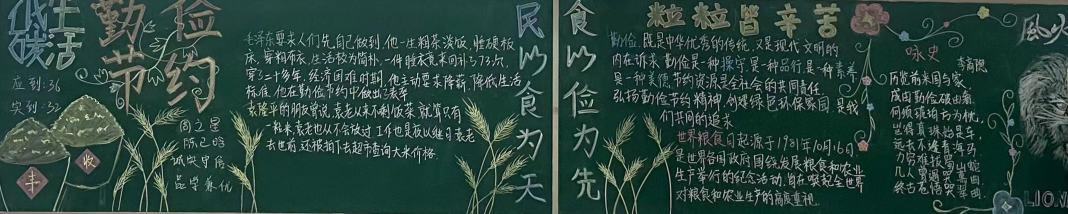 低碳生活
勤俭节约
应到:36
实到:32
周之星
品学兼优
丰
收
毛泽东要求人们先自己做到,他一生粗茶淡饭,睡硬板
床,穿粗布衣,生活极为简朴,一件睡衣竟来回补了73次,
穿了二十多年,经济困难时期,他主动要求降薪,降低生活
标准,他在勤俭节约中做出了表率
袁隆平的朋友曾说,袁老从来不剩饭菜,就算只有
一粒米,袁老也从不会放过,工作也是
去世前,还被拍下去超市查询大米价格.
民以食为天
食以俭为先
粒粒皆辛苦
勤俭,既是中华优秀的传统,又是现代文明的
内在诉求 勤俭是一种操守,是一种品行,是一种素养,
是一种美德,节约资源是全社会的共同责任
弘扬勤俭节约精神,创造绿色环保家园,是我
们共同的追求
世界粮食日起源于1981年10月16日,
是世界各国政府围绕发展粮食和农业
生产举行的纪念活动,旨在唤起全世界
对粮食和农业生产的高度重视
咏史
李商隐
历览前来国与家,
成由勤俭破由奢.
何须琥珀方为枕,
岂得真珠始是车.
远去不逢青海马,
力穷难拔蜀山蛇
几人曾预
终古苍梧哭翠
風火
LION